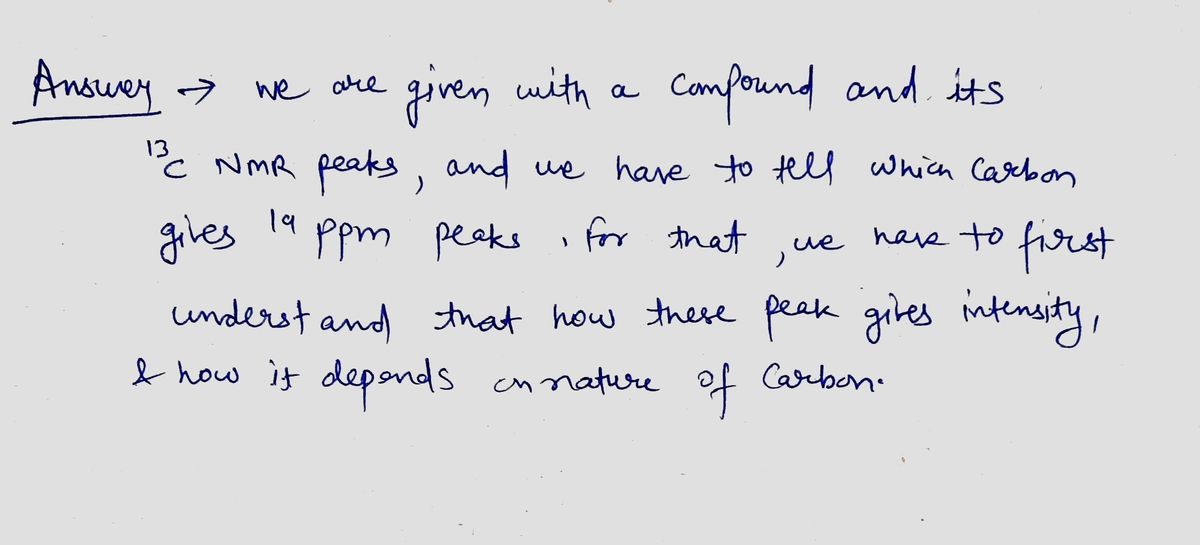 Answer → we are given with a compound and its
13C NMR peaks, and we have to tell which Carbon
gives 19 ppm peaks, for that, we have to first
understand that how these peak gives intensity,
& how it depends on nature of Carbon.